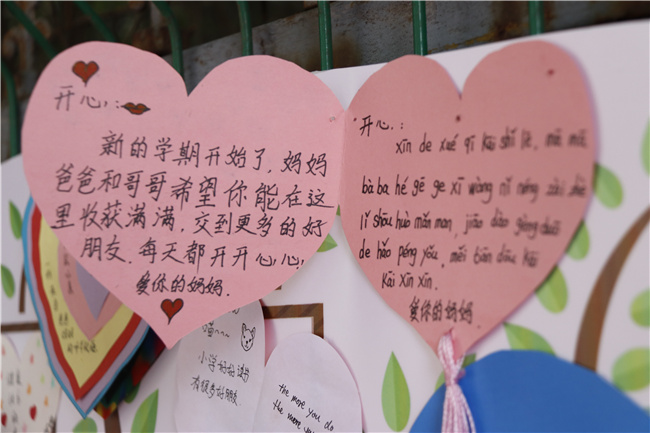 开心:
新的学期开始了,妈妈
爸爸和哥哥希望你能在这
里收获满满,交到更多的好
朋友.每天都开开心心.
爱你的妈妈.
开心:
xīn de xué qī kāi shǐ le, mā mā
bà ba hé gē ge xī wàng nǐ néng zài zhè
lǐ shōu huò mǎn mǎn, jiāo dào gèng duō
de hǎo péng yǒu, měi tiān dōu kāi
kāi xīn xīn.
爱你的妈妈.
小学好好读书
有很多好朋友
the more you do
the more you